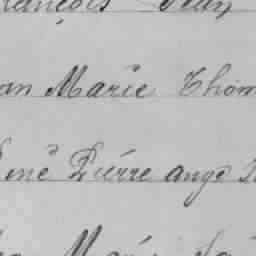 François Jean
an Marie Thom
René Pierre ange
Marie